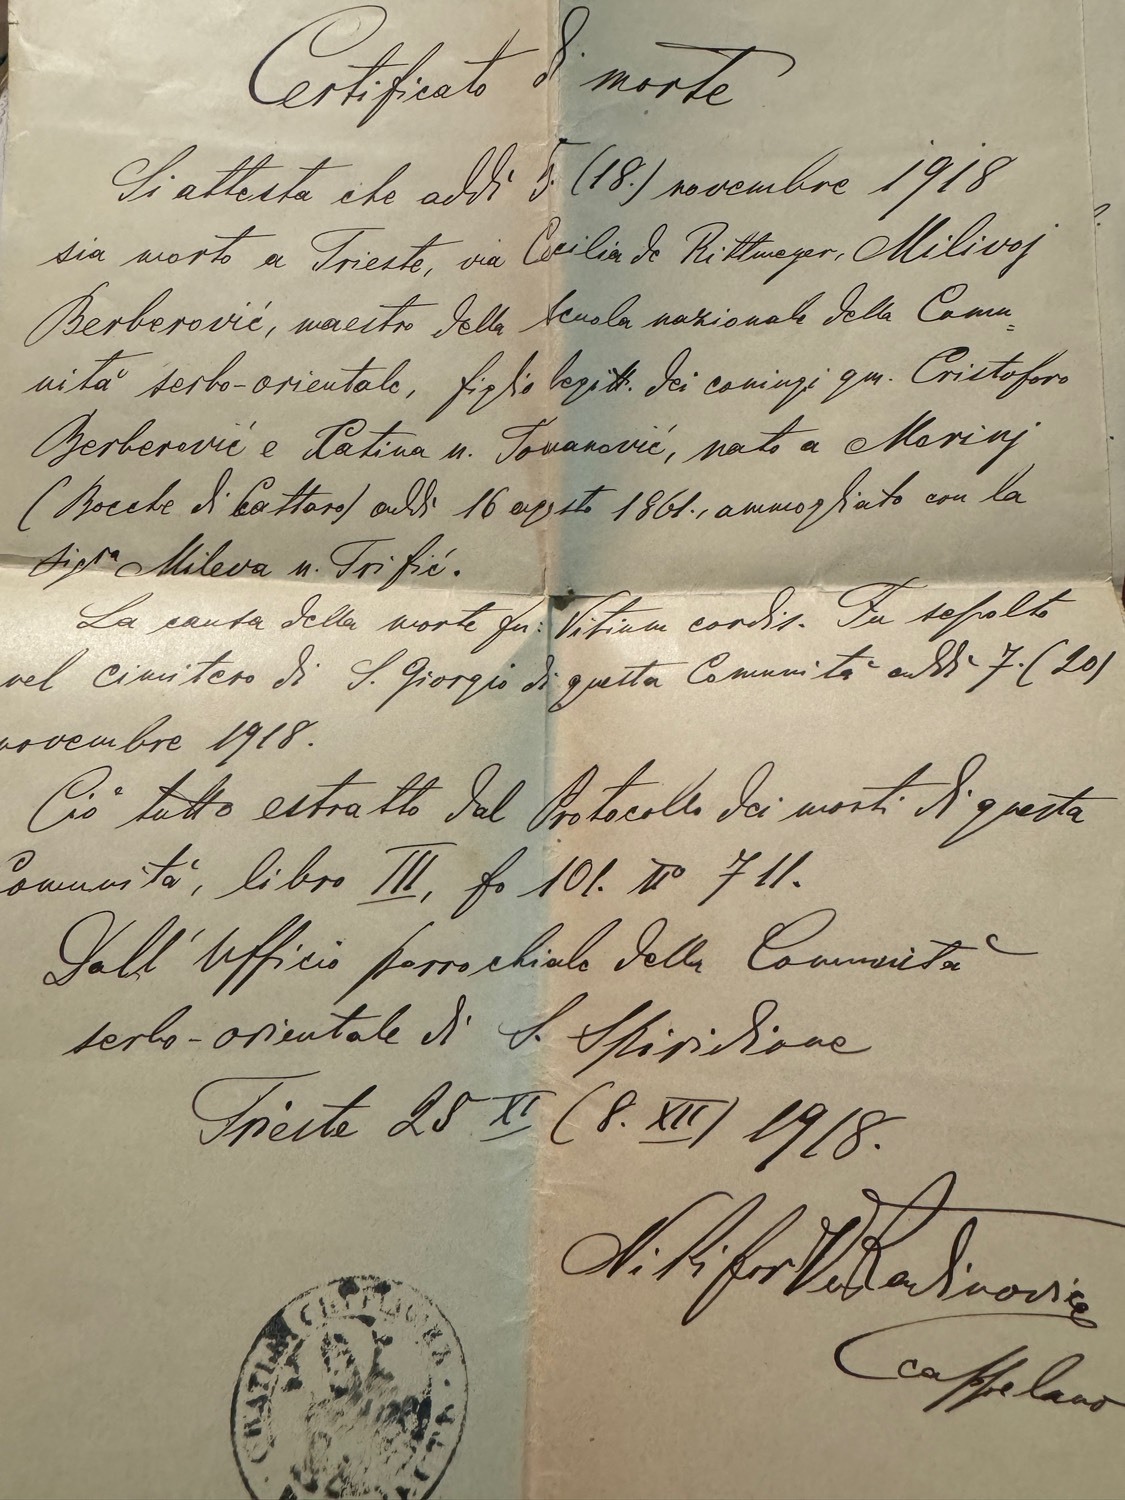 Certificato di morte
Si attesta che addì 5. (18.) novembre 1918
sia morto a Trieste, via Cecilia de Rittmeyer, Milivoj
Berberović, maestro della scuola nazionale della Comu=
nità serbo-orientale, figlio legitt. dei coniugi qm. Cristoforo
Berberović e Catina n. Tomanović, nato a Morinj
(Bocche di Cattaro) addì 16 agosto 1861., ammogliato con la
sigra Mileva n. Trifić.
La causa della morte fu: Vitium cordis. Fu sepolto
nel cimitero di S. Giorgio di questa Comunità addì 7. (20)
novembre 1918.
Ciò tutto estratto dal Protocollo dei morti di questa
Comunità, libro III, fo 101. No 711.
Dall' Ufficio parrochiale della Comunità
serbo-orientale di S. Spiridione
Trieste 25 XI (8. XII) 1918.
Nikifor Radinović
cappelano